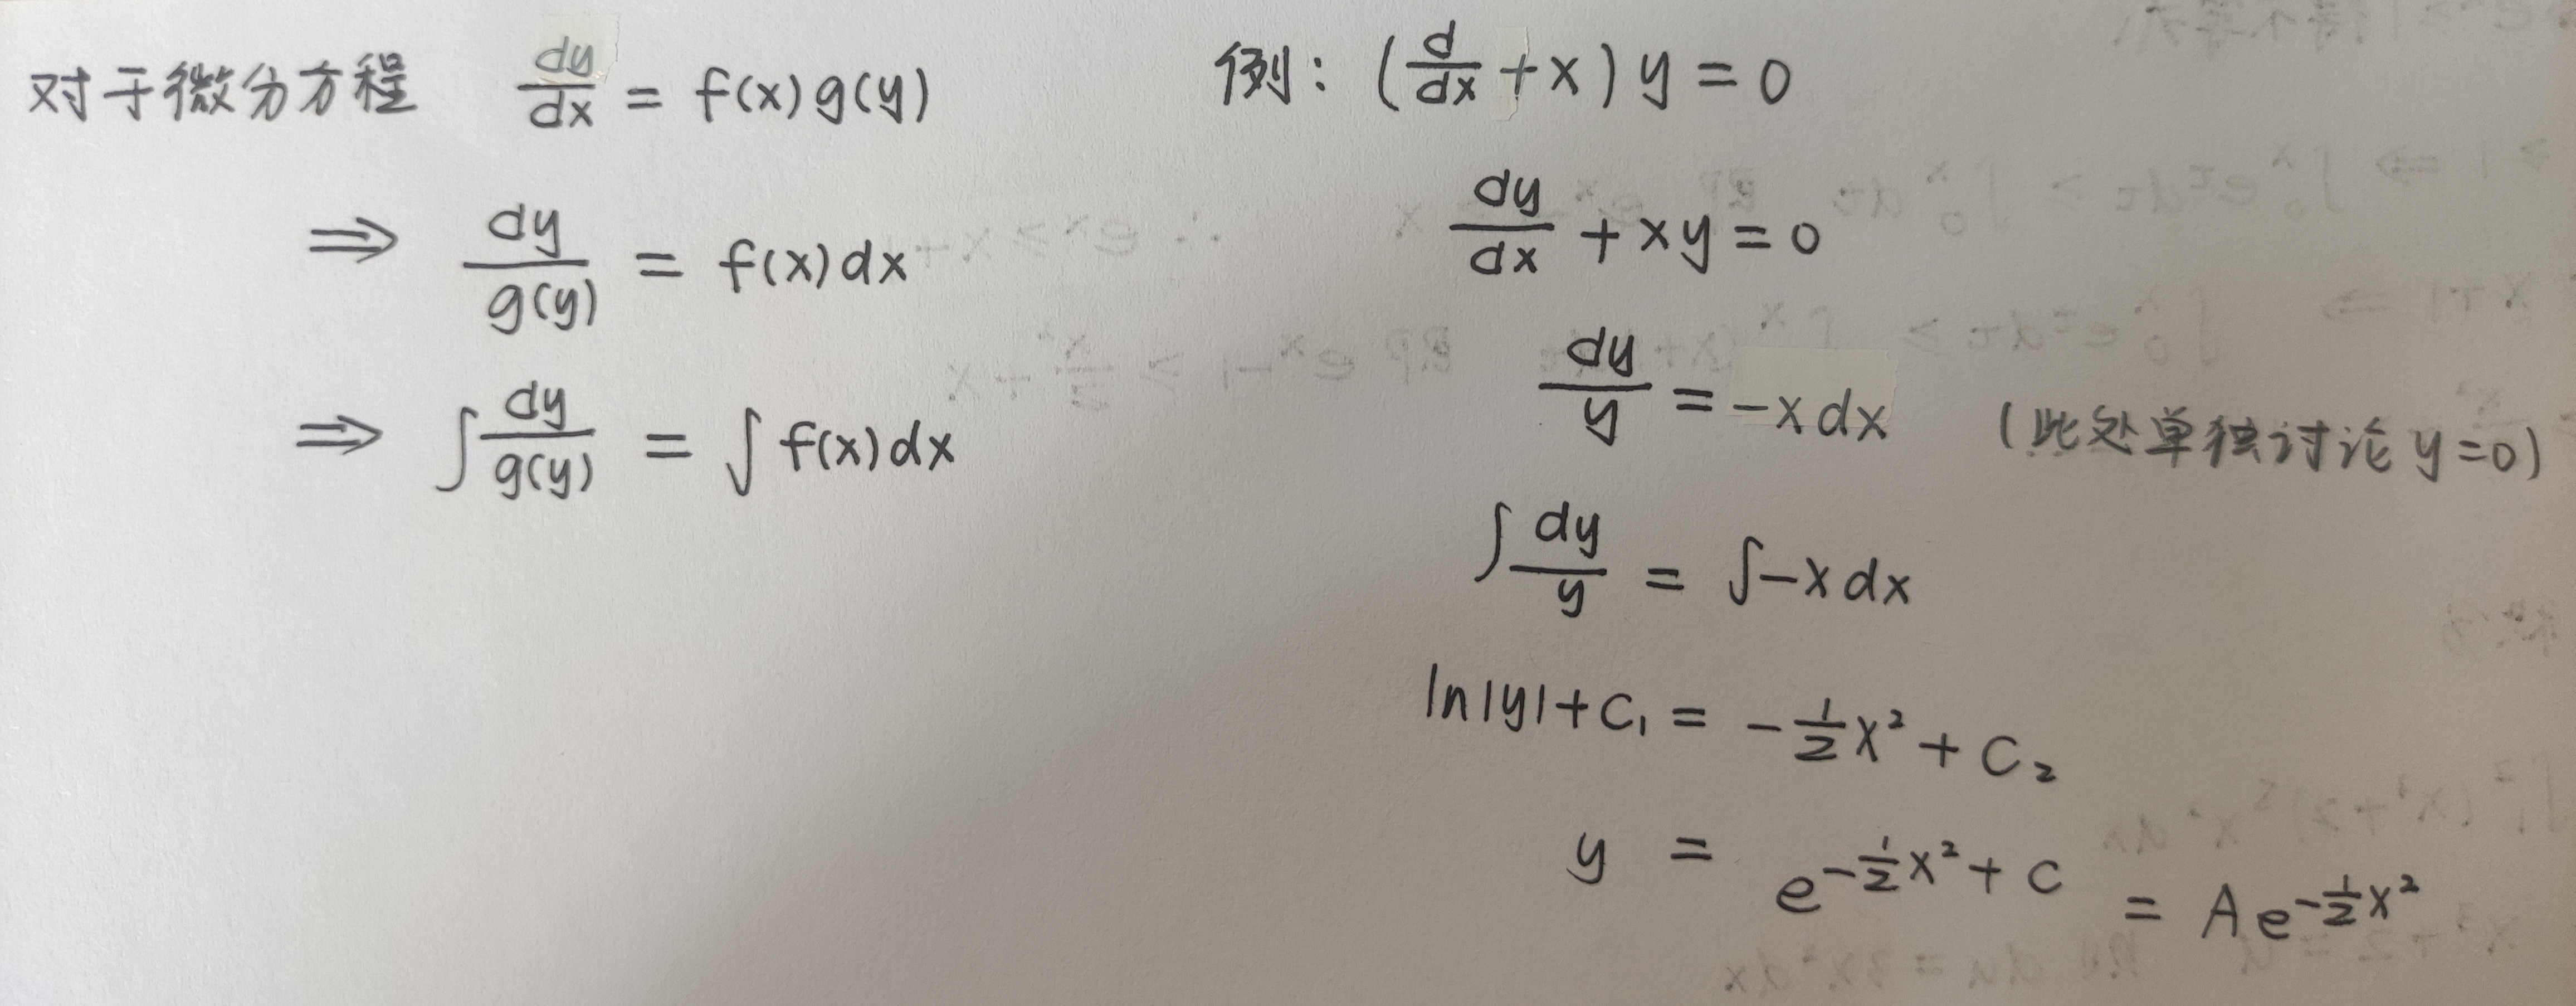 对于微分方程 dy/dx = f(x)g(y)
⇒ dy/g(y) = f(x)dx
⇒ ∫dy/g(y) = ∫f(x)dx
例: (d/dx + x)y = 0
dy/dx + xy = 0
dy/y = -xdx (此处单独讨论 y=0)
∫dy/y = ∫-xdx
ln|y| + C₁ = -½x² + C₂
y = e^(-½x² + C) = Ae^(-½x²)